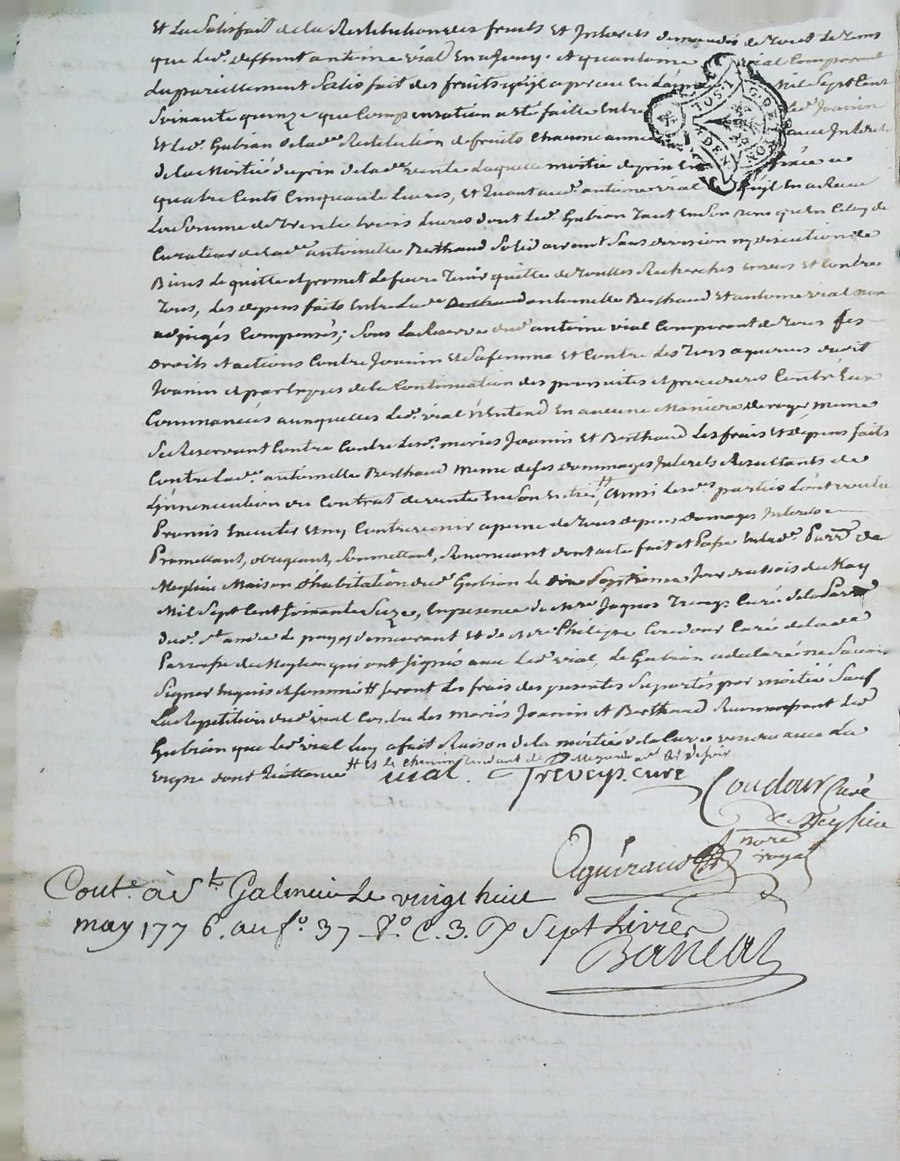 Et la Satisfait de la Restitution des fruits et Interets demandés de tout le tems
que led. deffunt antoine vial En a Jouy; et quantome vial Comparant
La pareillement Satisfait des fruits Mil Sept Cent
Soixante quinze que Compensation a eté faitte Entre led. Joanin
Et led. Gubian de lad. Restitution de fruits chacune année Interets
de la Moitié du prix de lad. vente laquelle moitié de prix
quatre Cents Cinquante Livres, et Quant aud. antoine vial quil En a Recu
La Somme de trente trois Livres dont led. Gubian tant En Son nom que En Calite de
Curateur de lad. antoinette Berthaud Solidairement Sans division ny discution de
Biens Le quitte et promet Le faire tenir quitte de touttes Recherches envers et Contre
tous, Les depens faits Entre Lad. antoinette Berthaud Et antoine vial non
adjugés Compensés; Sous La Reserve dud. antoine vial Comparant de tous ses
droits et actions Contre Joanin et Sa femme et Contre des tiers aquereurs dud.
Joanin et par Exprès de la Continuation des poursuites et procedures Contre Eux
Commancées auxquelles led. vial n'Entend En aucune Maniere deroger meme
Se Reservant Contre Contre lesd. mariés Joanin Et Berthaud Les frais et depens faits
Contre Lad. antoinette Berthaud meme de ses dommages Interets Resultants de
L'innexecution du Contrat de vente En Son Entier, # Ainsi lesd. parties L'ont voulu
Promis Executer et ny Contrevenir a peine de tous depens domages Interets
Promettant, obligeant, Soumettant, Renoncant dont acte fait et Passé En lad. Parr. de
Meylieu Maison D'habitation dud. Gubian le Septieme Jour du Mois de May
Mil Sept Cent Soixante Seize, En presence de Mre Jaques Treveys Curé de la Parr.
dud. St andré le puy y demeurant et de Mre Philippe Coudour Curé de lad.
Parroisse de Meylieu qui ont Signés avec led. vial, Le Gubian a declaré ne Savoir
Signer Enquis et Sommé # Seront Les frais des presentes Suportés par moitié Sauf
La Repetition dud. vial Contre Les mariés Joanin et Berthaud Reconnoissant led.
Gubian que led. vial luy a fait Raison de la moitié de la Cuve vendue avec La
vigne dont quittance # Et le chemin tendant de
vial. Treveys. curé
Coudour Curé
de Meylieu
Aguiraud
nore
royal
Conté. à St. Galmier Le vingt huit
may 1776. au fo. 37 Vo. C. 3. R Sept Livres
Bancal
TIOSI
G. DE LYON
DEN